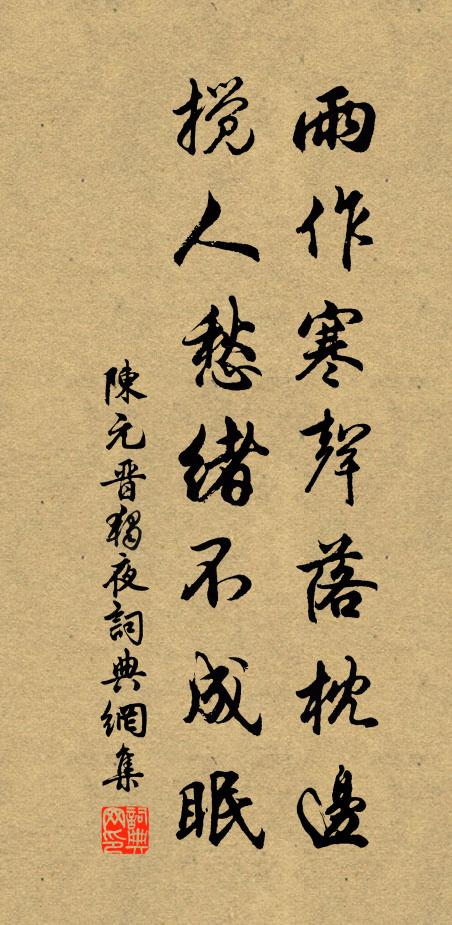 雨作寒聲落枕邊
攪人愁緒不成眠
陳元晋獨夜詞典網集
詞典網印